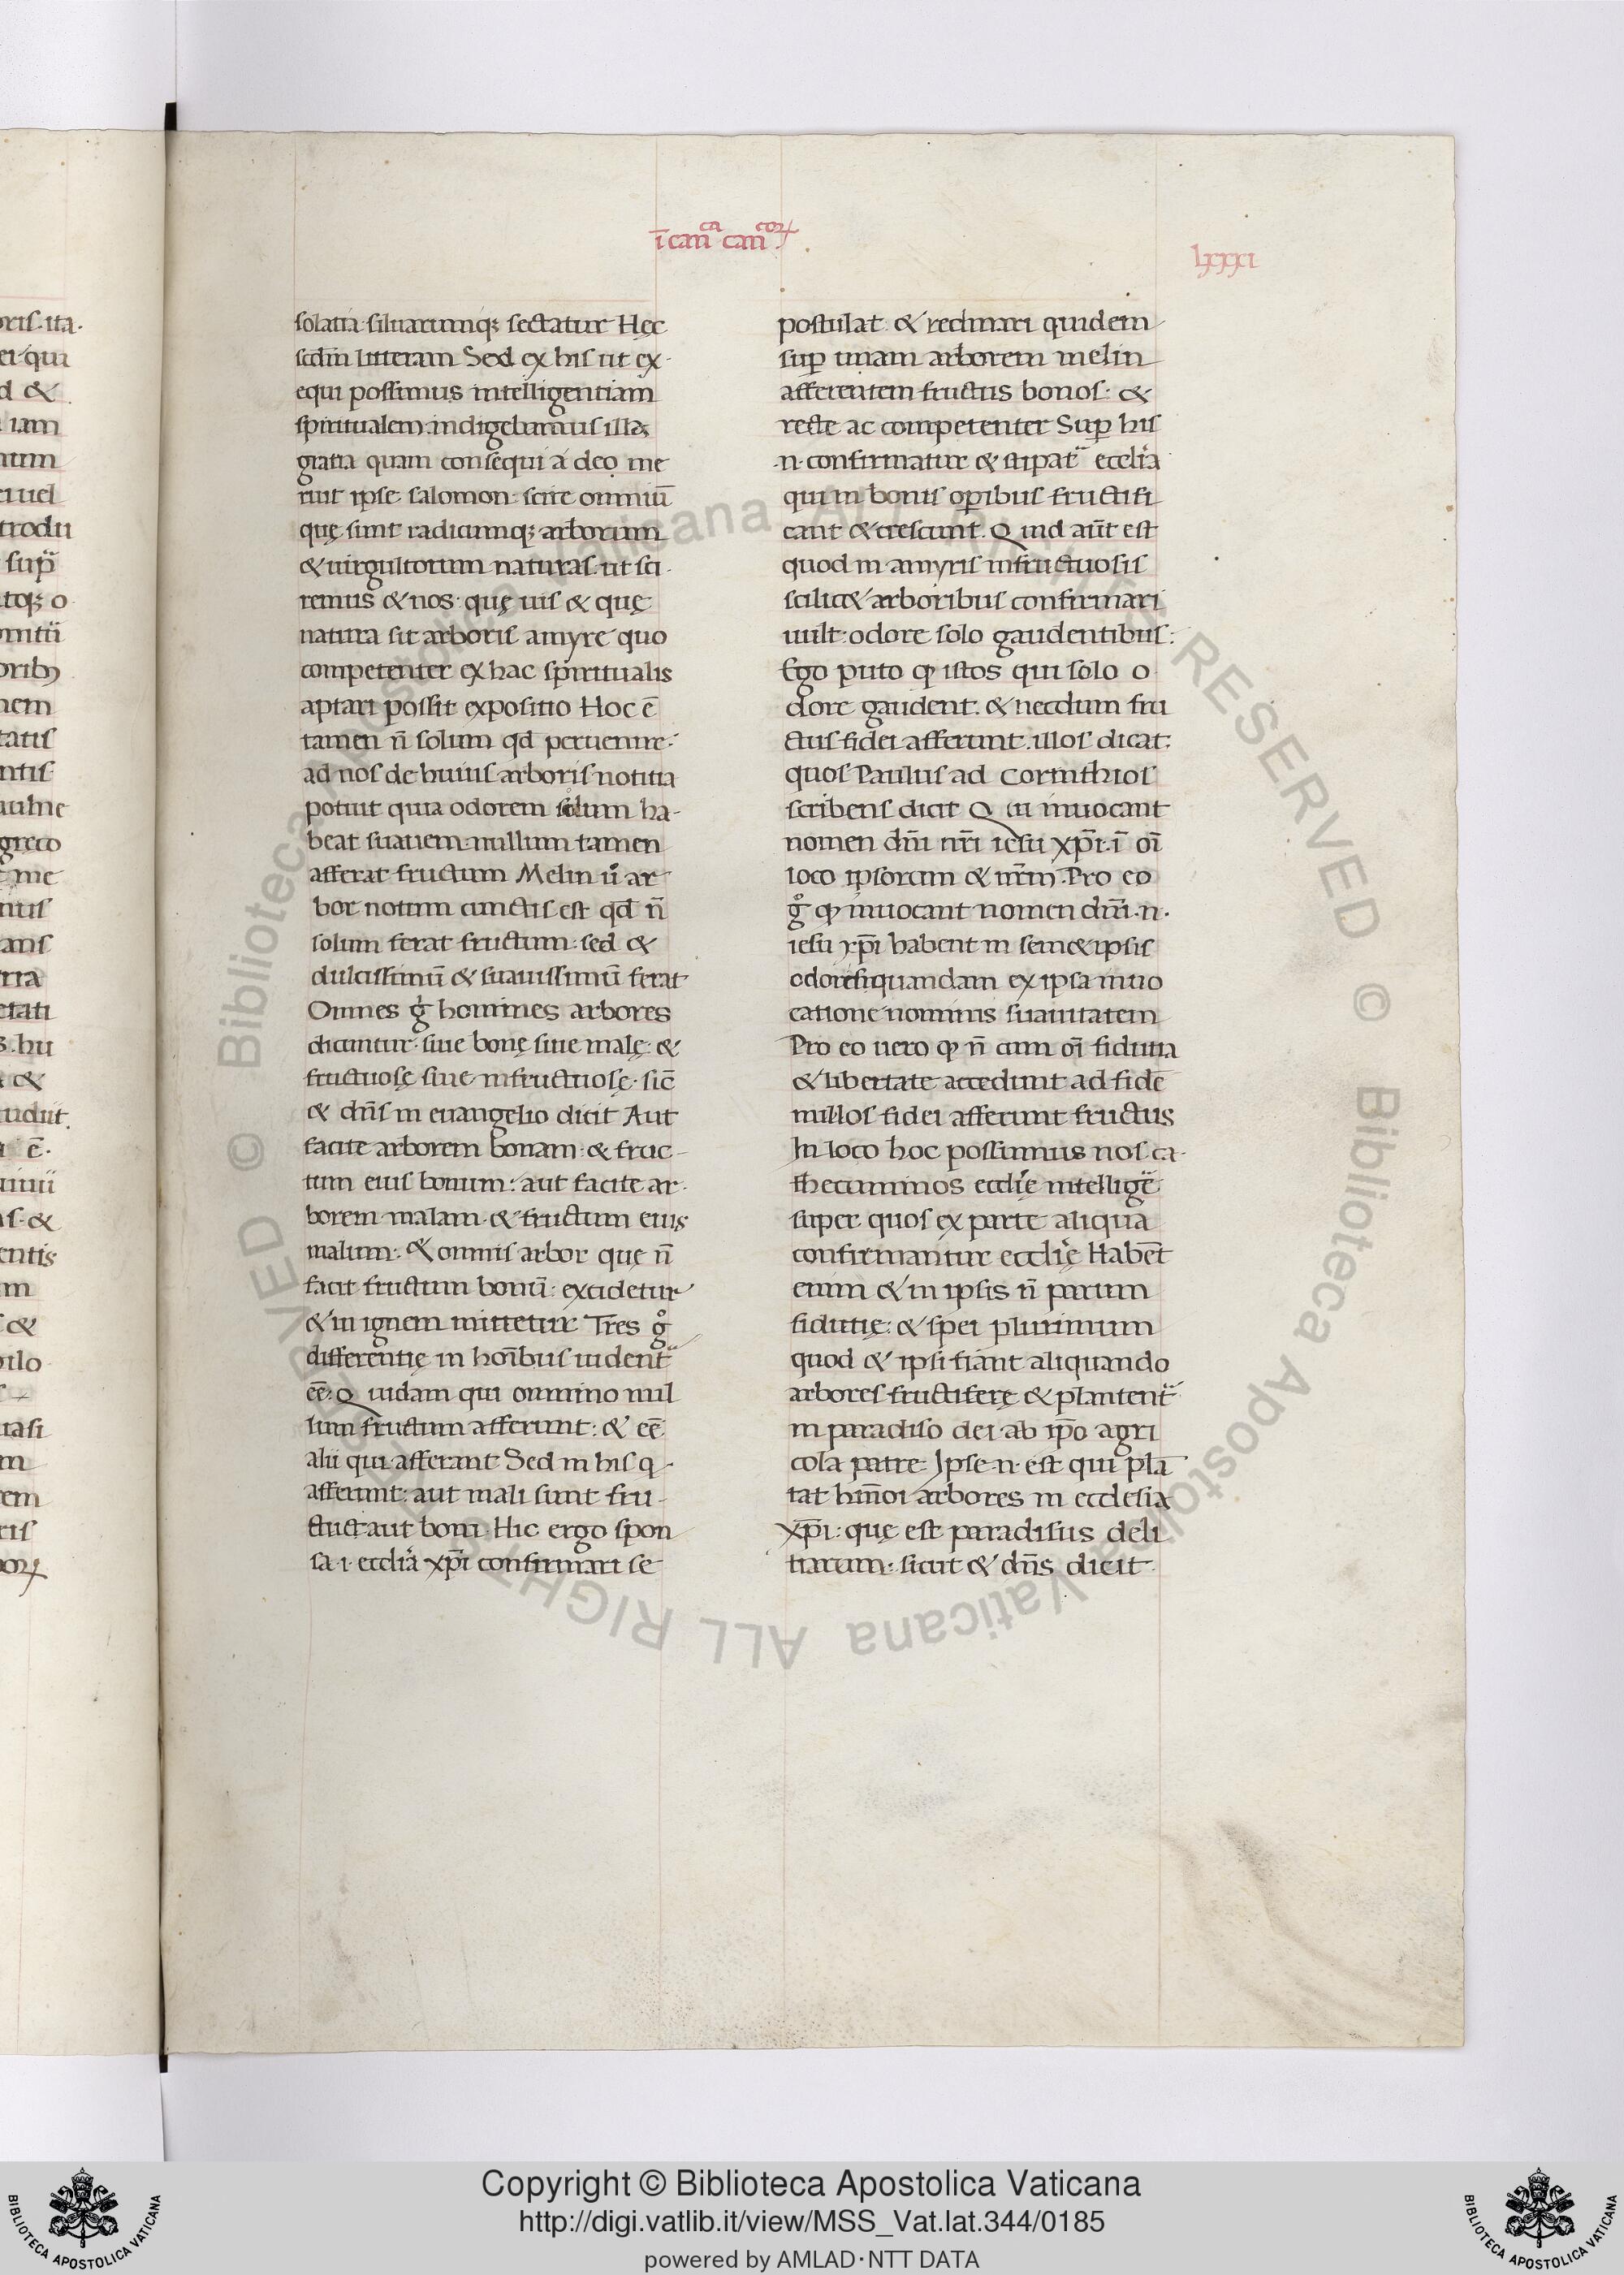 ī canᶜᵃ canᶜᵒꝝ.
lxxxi
solatia siluarumq; sectatur Hęc
scdm litteram Sed ex his ut ex-
equi possimus intelligentiam
spiritualem indigebamus illa
gratia quam consequi a deo me
ruit ipse salomon scire omniū
quę sunt radicumq; arborum
& uirgultorum naturas. ut sci-
remus & nos quę uis & quę
natura sit arboris amyre quo
competenter ex hac spiritualis
aptari possit expositio Hoc ē
tamen ñ solum qđ peruenire
ad nos de huius arboris notitia
potuit quia odorem solum ha-
beat suauem nullum tamen
afferat fructum Melin u̇ ar
bor notum cunctis est qđ ñ
solum ferat fructum: sed &
dulcissimū & suauissimū ferat
Omnes g̍ homines arbores
dicuntur siue bonę siue malę: &
fructuosę siue infructuosę. sic̄
& dn̄s in euangelio dicit Aut
facite arborem bonam: & fruc-
tum eius bonum: aut facite ar-
borem malam & fructum eius
malum: & omnis arbor quę ñ
facit fructum bonū: excidetur
& in ignem mittetur Tres g̊
differentię in hoı̄bus uident᷑
eē. Quidam qui omnino nul
lum fructum afferunt: & eē
alii qui afferant Sed in his q-
afferunt: aut mali sunt fru-
ctus aut boni Hic ergo spon
sa .i. ecclı̄a xp̄i confirmari se
postulat & redinari quidem
sup̱ unam arborem melin
afferentem fructus bonos: &
recte ac competenter Sup̱ his
.n. confirmatur & stipat᷑ ecclı̄a
qui in bonis op̱ibus fructifi
cant & crescunt. Quid aūt est
quod in amyris infructuosis
scilic& arboribus confirmari
uult: odore solo gaudentibus:
Ego puto ꝙ istos qui solo o
dore gaudent. & necdum fru
ctus fidei afferunt. illos dicat:
quos Paulus ad Corinthios
scribens dicit Qui inuocant
nomen dn̄i nr̄i iesu xp̄i. ī oı̄
loco ipsorum & nr̄m. Pro eo
g̊ ꝙ inuocant nomen dn̄i .n.
iesu xp̄i habent in sem&ipsis
odoris quandam ex ipsa inuo
catione nominis suauitatem
Pro eo uero ꝙ ñ cum oı̄ fiducia
& libertate accedunt ad fidē
nullos fidei afferunt fructus
In loco hoc possumus nos ca-
thecuminos ecclı̄ę intellig̃e
super quos ex parte aliqua
confirmantur ecclı̄ę Habēt
enim & in ipsis ñ parum
fidutię: & spei plurimum
quod & ipsi fiant aliquando
arbores fructiferę & plantent᷑
in paradiso dei ab ip̄o agri
cola patre Ipse .n. est qui plā
tat hm̄oi arbores in ecclesia
xp̄i: quę est paradisus deli
tiarum: sicut & dn̄s dicit
Copyright © Biblioteca Apostolica Vaticana
http://digi.vatlib.it/view/MSS_Vat.lat.344/0185
powered by AMLAD·NTT DATA
BIBLIOTECA APOSTOLICA VATICANA
BIBLIOTECA APOSTOLICA VATICANA
© Biblioteca Apostolica Vaticana ALL RIGHTS RESERVED © Biblioteca Apostolica Vaticana ALL RIGHTS RESERVED